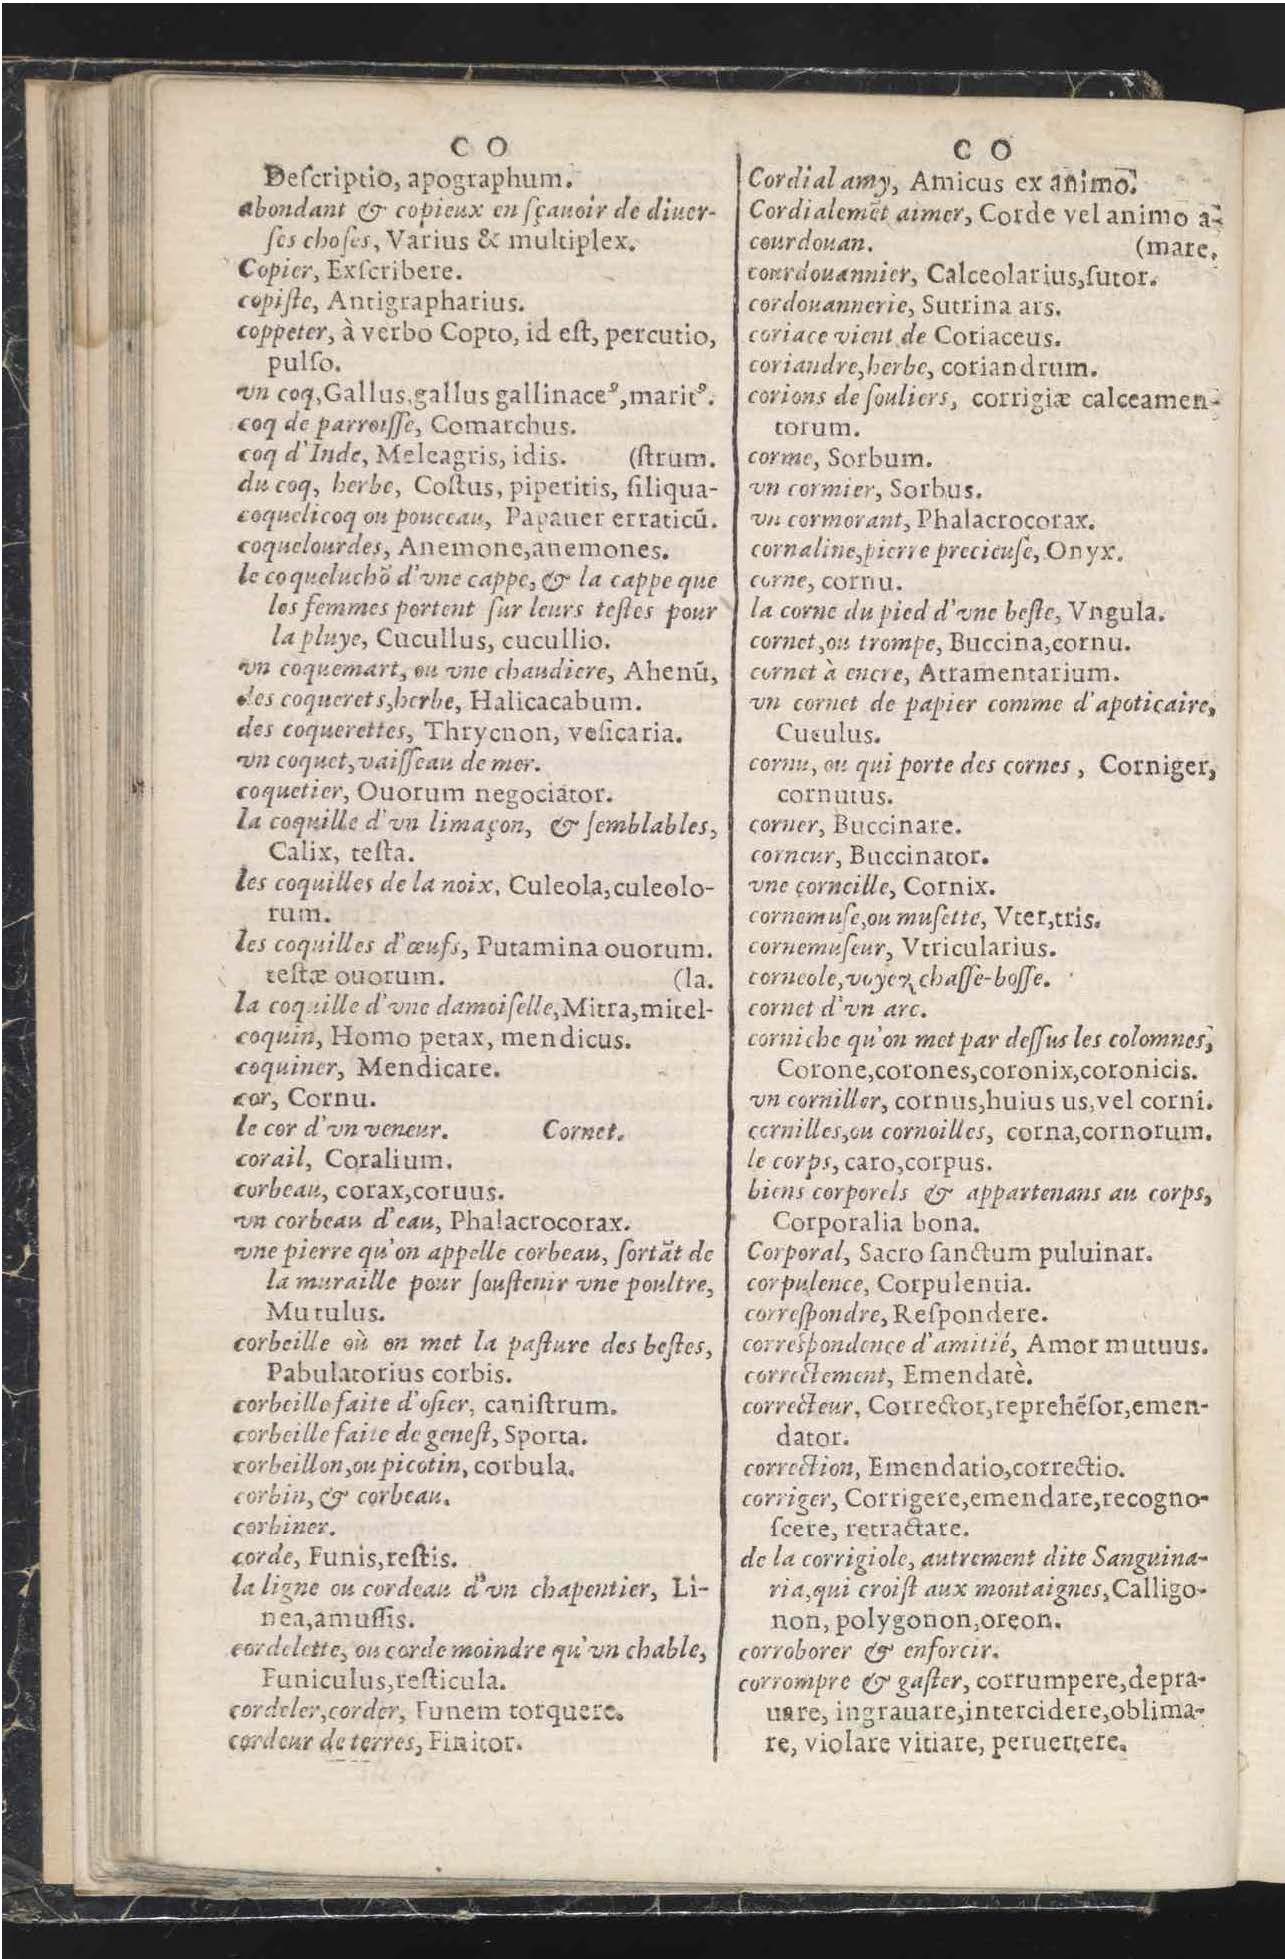 C O
Deſcriptio, apographum.
abondant & copieux en ſçauoir de diuer-
ſes choſes, Varius & multiplex.
Copier, Exſcribere.
copiſte, Antigrapharius.
coppeter, à verbo Copto, id eſt, percutio,
pulſo.
vn coq, Gallus, gallus gallinaceꝰ, maritꝰ.
coq de parroiſſe, Comarchus.
coq d'Inde, Meleagris, idis. (ſtrum.
du coq, herbe, Coſtus, piperitis, ſiliqua-
coquelicoq ou ponceau, Papauer erraticū.
coquelourdes, Anemone, anemones.
le coqueluchō d'vne cappe, & la cappe que
les femmes portent ſur leurs teſtes pour
la pluye, Cucullus, cucullio.
vn coquemart, ou vne chaudiere, Ahenū,
des coquerets, herbe, Halicacabum.
des coquerettes, Thrycnon, veſicaria.
vn coquet, vaiſſeau de mer.
coquetier, Ouorum negociator.
la coquille d'vn limaçon, & ſemblables,
Calix, teſta.
les coquilles de la noix, Culeola, culeolo-
rum.
les coquilles d'œufs, Putamina ouorum.
teſtæ ouorum. (la.
la coquille d'vne damoiſelle, Mitra, mitel-
coquin, Homo petax, mendicus.
coquiner, Mendicare.
cor, Cornu.
le cor d'vn veneur. Cornet.
corail, Coralium.
corbeau, corax, coruus.
vn corbeau d'eau, Phalacrocorax.
vne pierre qu'on appelle corbeau, ſortāt de
la muraille pour ſouſtenir vne poultre,
Mutulus.
corbeille où on met la paſture des beſtes,
Pabulatorius corbis.
corbeille faite d'oſier, caniſtrum.
corbeille faite de geneſt, Sporta.
corbeillon, ou picotin, corbula.
corbin, & corbeau.
corbiner.
corde, Funis, reſtis.
la ligne ou cordeau d'vn chapentier, Li-
nea, amuſſis.
cordelette, ou corde moindre qu'vn chable,
Funiculus, reſticula.
cordeler, corder, Funem torquere.
cordeur de terres, Finitor.
C O
Cordial amy, Amicus ex animo.
Cordialemēt aimer, Corde vel animo a-
courdouan. (mare.
courdouannier, Calceolarius, ſutor.
cordouannerie, Sutrina ars.
coriace vient de Coriaceus.
coriandre, herbe, coriandrum.
corions de ſouliers, corrigiæ calceamen-
torum.
corme, Sorbum.
vn cormier, Sorbus.
vn cormorant, Phalacrocorax.
cornaline, pierre precieuſe, Onyx.
corne, cornu.
la corne du pied d'vne beſte, Vngula.
cornet, ou trompe, Buccina, cornu.
cornet à encre, Atramentarium.
vn cornet de papier comme d'apoticaire,
Cuculus.
cornu, ou qui porte des cornes, Corniger,
cornutus.
corner, Buccinare.
corneur, Buccinator.
vne corneille, Cornix.
cornemuſe, ou muſette, Vter, tris.
cornemuſeur, Vtricularius.
corneole, voyez chaſſe-boſſe.
cornet d'vn arc.
corniche qu'on met par deſſus les colomnes,
Corone, corones, coronix, coronicis.
vn corniller, cornus, huius us, vel corni.
cornilles, ou cornoilles, corna, cornorum.
le corps, caro, corpus.
biens corporels & appartenans au corps,
Corporalia bona.
Corporal, Sacro ſanctum puluinar.
corpulence, Corpulentia.
correſpondre, Reſpondere.
correſpondence d'amitié, Amor mutuus.
correctement, Emendatè.
correcteur, Corrector, reprehēſor, emen-
dator.
correction, Emendatio, correctio.
corriger, Corrigere, emendare, recogno-
ſcere, retractare.
de la corrigiole, autrement dite Sanguina-
ria, qui croiſt aux montaignes, Calligo-
non, polygonon, oreon.
corroborer & enforcir.
corrompre & gaſter, corrumpere, depra-
uare, ingrauare, intercidere, oblima-
re, violare vitiare, peruertere.